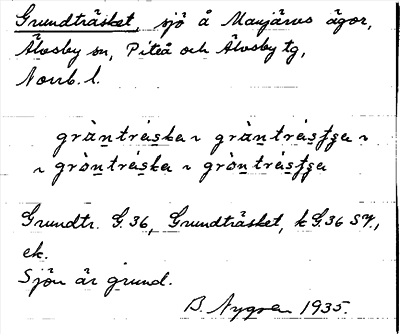 Grundträsket, sjö å Manjärvs ägor,
Älvsby sn, Piteå och Älvsby tg,
Norrb. l.
grànträska ~ grànträsʃʒa ~
~ grònträska ~ gròntrásʃʒa
Grundtr. G. 36, Grundträsket, k G. 36 SV.,
ek.
Sjön är grund.
B. Nygren 1935.